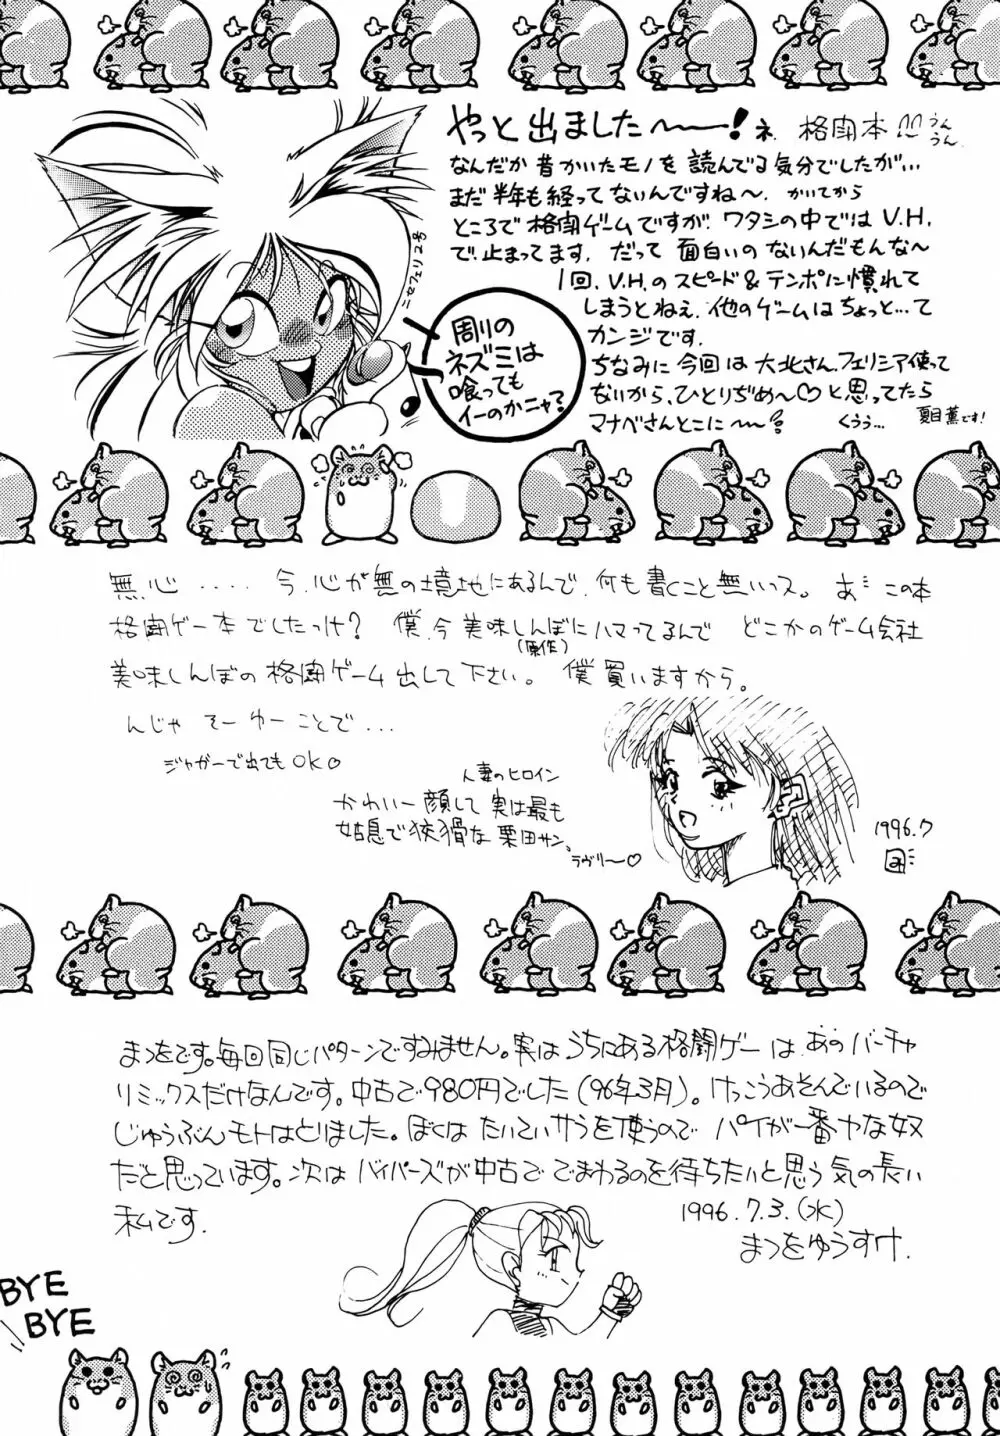 やっと出ました～――!ネ. 格闘本 !! うんうん.
なんだか昔かいたモノを読んでる気分でしたが...
まだ半年も経ってないんですね～. かいてから
ところで格闘ゲームですが. ワタシの中ではV.H.
で.止まってます. だって面白いのないんだもんな～
1回. V.H.のスピード&テンポに慣れて
しまうとねぇ. 他のゲームはちょっと...て
カンジです.
ちなみに今回は大北さん.フェリシア使って
ないから、ひとりぢめ～♡と思ってたら
マナベさんとこに～～!?
くうぅ... 夏目薫です!
ニセフェリ2号
周りの
ネズミは
喰っても
イーのかニャ?
無心 ..... 今.心が無の境地にあるんで.何も書くこと無いっス。あ!この本
格闘ゲー本でしたっけ? 僕.今美味しんぼにハマってるんで どこかのゲーム会社
(原作)
美味しんぼの格闘ゲーム出して下さい。 僕買いますから。
んじゃ そーゆーことで...
ジャガーで出てもOK♡
人妻のヒロイン
かわいー顔して実は最も
姑息で狡猾な栗田サン、
ラヴリー～♡
1996.7
まつをです。毎回同じパターンですみません。実はうちにある格闘ゲーは.あのバーチャ
リミックスだけなんです。中古で980円でした(96年3月)。けっこうあそんでいるので
じゅうぶんモトはとりました。ぼくはたいていサラを使うので パイが一番ヤな奴
だと思っています。次はバイパーズが中古ででまわるのを待ちたいと思う気の長い
私です.
1996.7.3.(水)
まつをゆうすけ.
BYE
BYE